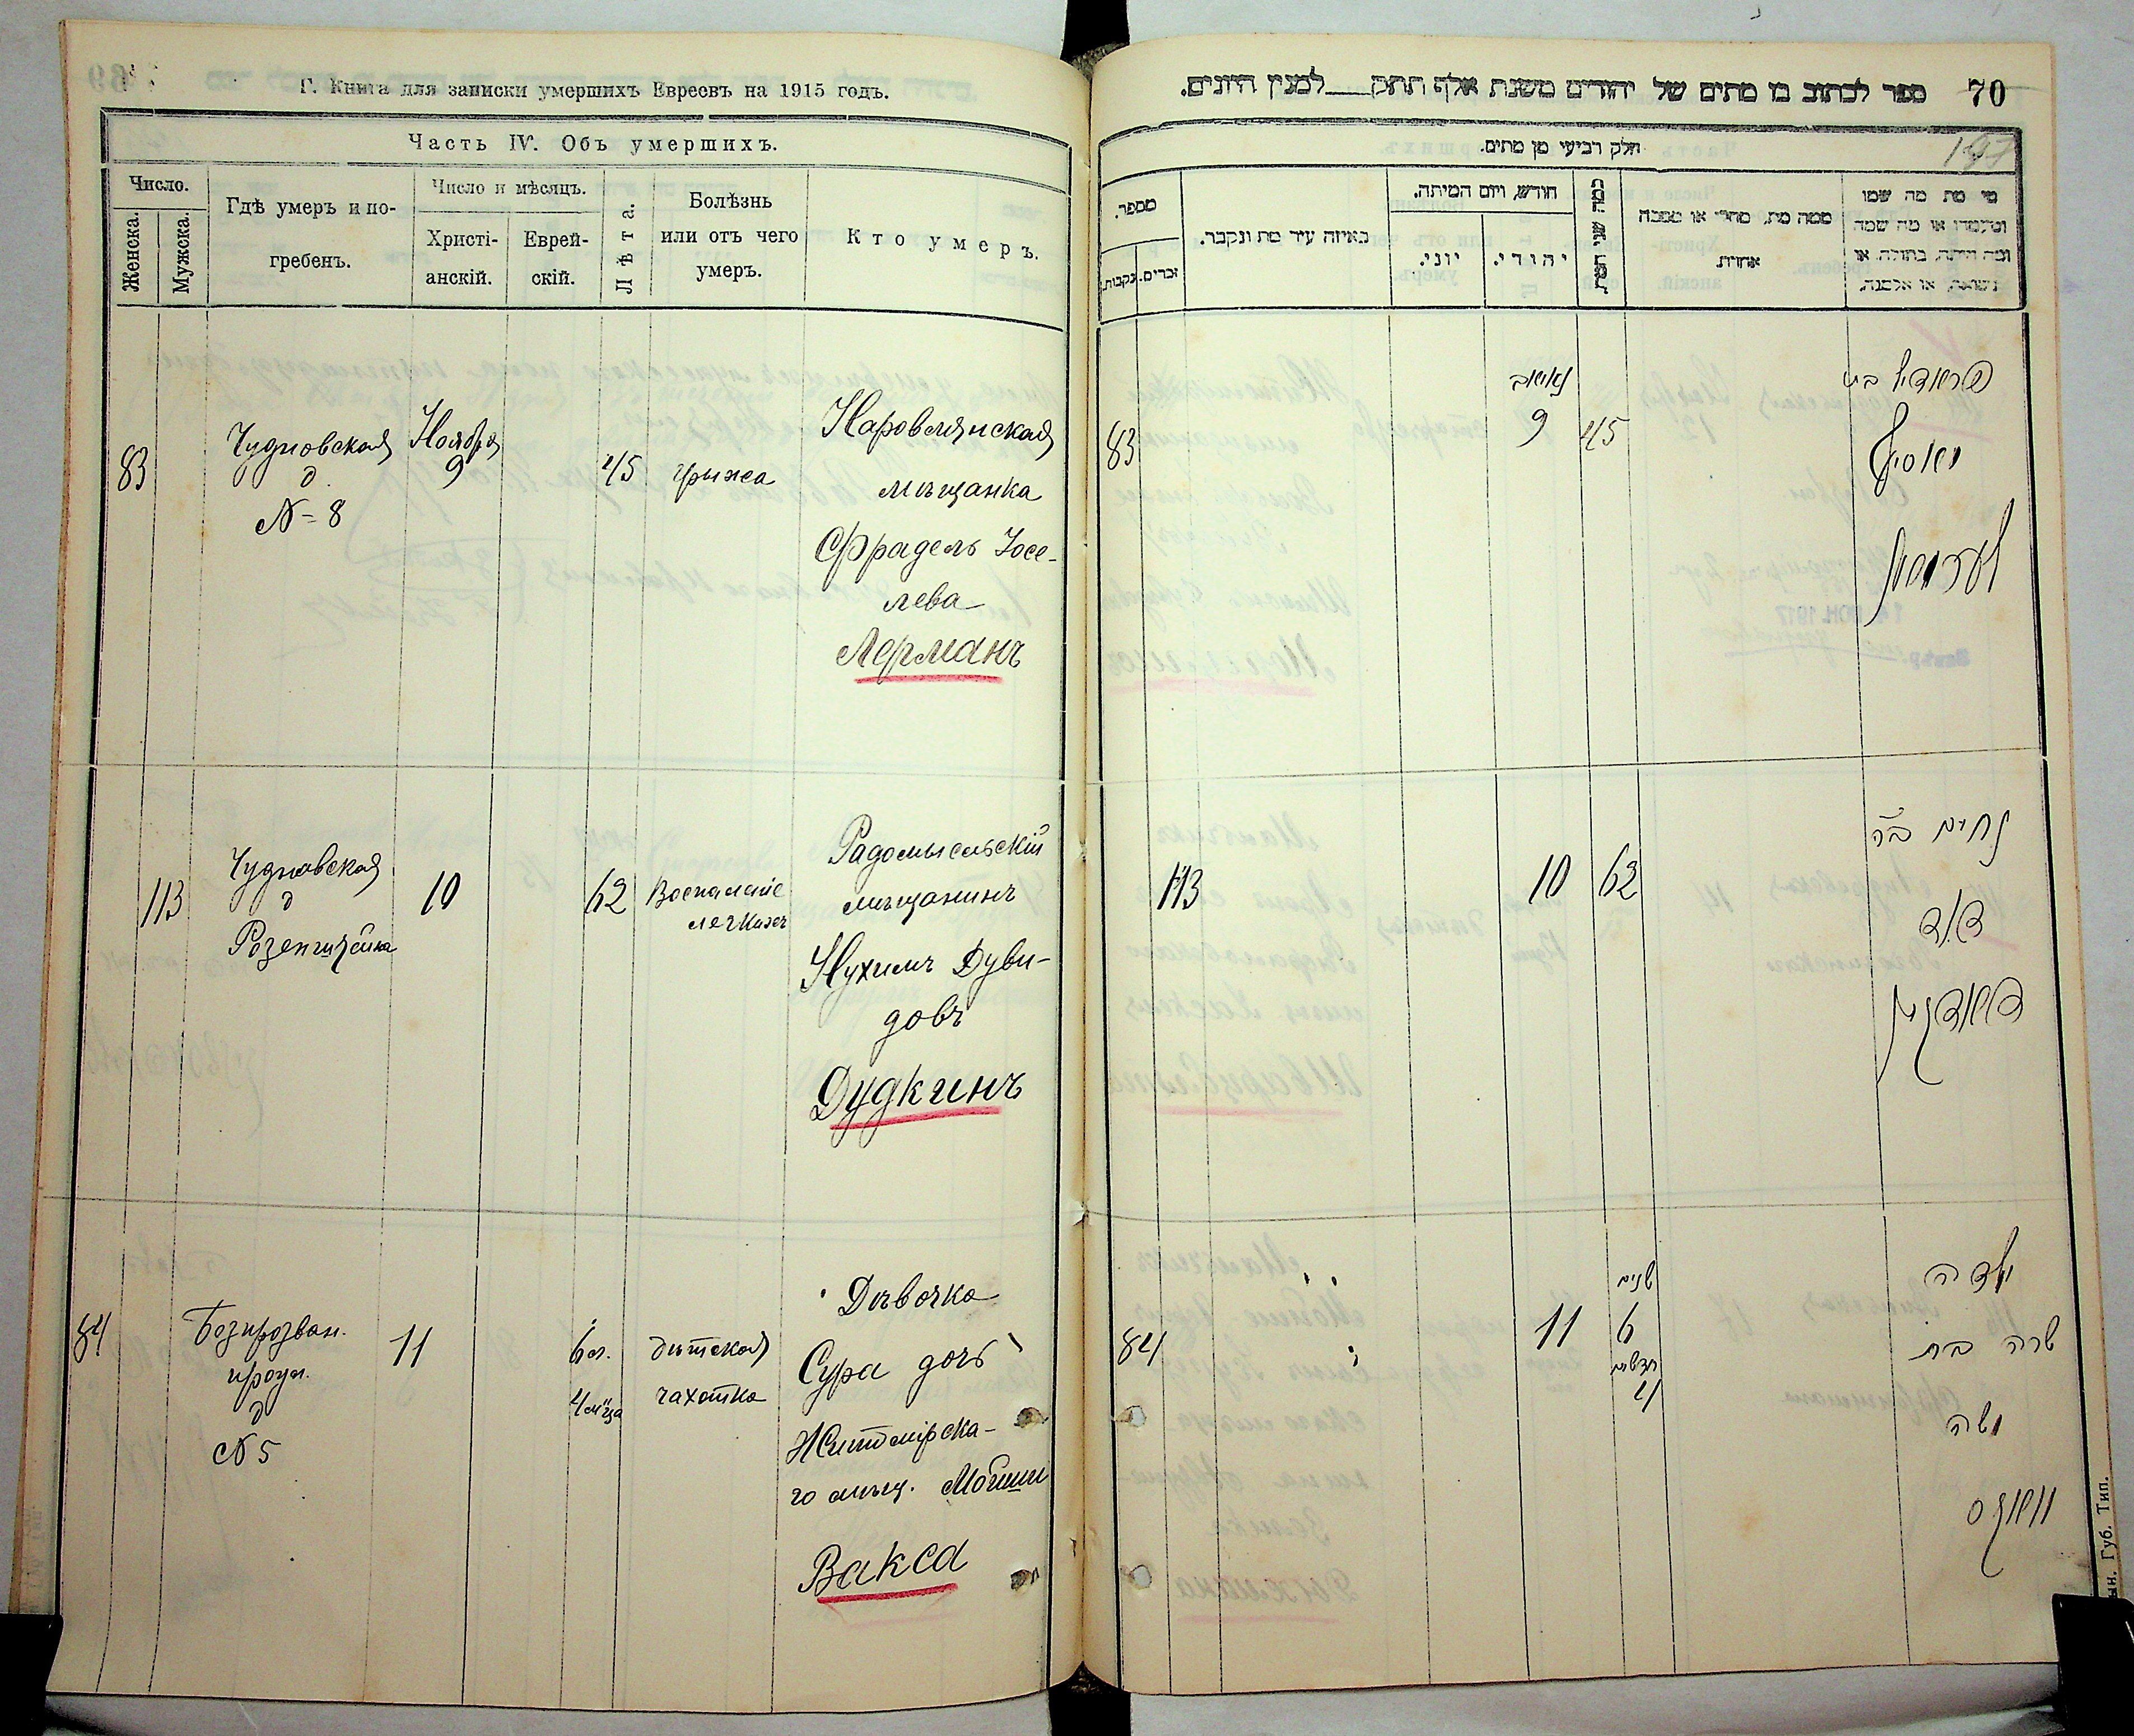 Г. Книга для записки умершихъ Евреевъ на 1915 годъ.
Часть IV. Объ умершихъ.
Число.
Женска.
Мужска.
Гдѣ умеръ и по-
гребенъ.
Число и мѣсяцъ.
Христі-
анскій.
Еврей-
скій.
Лѣта.
Болѣзнь
или отъ чего
умеръ.
Кто умеръ.
83
Чудновская
д.
№ 8
Ноября
9
45
грыжа
Наровлянская
мѣщанка
Фрадель Іосе-
лева
Лерманъ
113
Чудновская
д
Розенштейна
10
62
Воспаленіе
легкихъ
Радомысльскій
мѣщанинъ
Нухимъ Дуви-
довъ
Дудкинъ
84
11
6 л.
4 м-ца
дѣтская
чахотка
Дѣвочка
Сура дочь
Житомірска-
го мѣщ. Мошки
Вакса
д
№ 5
70
ספר לכתוב בו מתים של יהודים משנת אלף תתק למנין היונים.
197
חלק רביעי מן מתים.
מספר.
נקבות.
זכרים.
באיזה עיר מת ונקבר.
חודש, ויום המיתה.
יוני.
יהודי.
כמה שני המת
ממה מת, מחלי או מסבה
אחרת.
מי מת מה שמו
ומעמדו או מה שמה
ומה היתה, בתולה, או
נשואה, או אלמנה.
83
9
45
פראדיל בת
יאסיף
לערמאן
113
10
62
נחים ב"ר
דוד
דודקין
84
11
שנים
6
חדשים
4
ילדה
שרה בת
משה
וואקס
Губ. Тип.